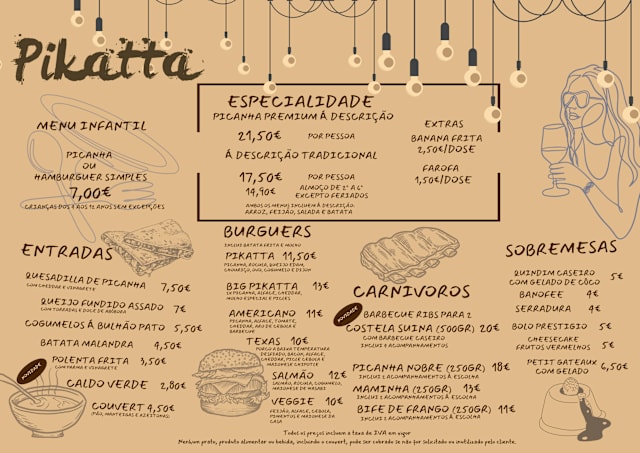 Pikatta
MENU INFANTIL
PICANHA
OU
HAMBURGUER SIMPLES
7,00€
CRIANÇAS DOS 4 AOS 12 ANOS SEM EXCEPÇÕES
ESPECIALIDADE
PICANHA PREMIUM Á DESCRIÇÃO
21,50€ POR PESSOA
Á DESCRIÇÃO TRADICIONAL
17,50€ POR PESSOA
14,90€ ALMOÇO DE 2ª A 6ª
EXCEPTO FERIADOS
AMBOS OS MENUS INCLUEM Á DESCRIÇÃO:
ARROZ, FEIJÃO, SALADA E BATATA
EXTRAS
BANANA FRITA
2,50€/DOSE
FAROFA
1,50€/DOSE
ENTRADAS
QUESADILLA DE PICANHA 7,50€
COM CHEDDAR E VINAGRETE
QUEIJO FUNDIDO ASSADO 7€
COM TORRADAS E DOCE DE ABÓBORA
COGUMELOS Á BULHÃO PATO 5,50€
BATATA MALANDRA 4,50€
NOVIDADE
POLENTA FRITA 3,50€
COM PARMA E VINAGRETE
CALDO VERDE 2,80€
COUVERT 4,50€
PÃO, MANTEIGAS E AZEITONAS
BURGUERS
INCLUI BATATA FRITA E MOLHO
PIKATTA 11,50€
PICANHA, RÚCULA, QUEIJO EDAM,
CHOURIÇO, OVO, COGUMELO E DIJON
BIG PIKATTA 13€
2X PICANHA, ALFACE, CHEDDAR,
MOLHO ESPECIAL E PICLES
AMERICANO 11€
PICANHA, ALFACE, TOMATE,
CHEDDAR, ARO DE CEBOLA E
BARBECUE
TEXAS 10€
PORCO A BAIXA TEMPERATURA
DESFIADO, BACON, ALFACE,
CHEDDAR, PICLE CEBOLA E
MAIONESE CHIPOTLE
SALMÃO 12€
SALMÃO, RÚCULA, COGUMELO,
MAIONESE DE WASABI
VEGGIE 10€
FEIJÃO, ALFACE, CEBOLA,
PIMENTOS E MAIONESE DA
CASA
CARNIVOROS
NOVIDADE
BARBECUE RIBS PARA 2
COSTELA SUINA (500GR) 20€
COM BARBECUE CASEIRO
INCLUI 2 ACOMPANHAMENTOS
PICANHA NOBRE (250GR) 18€
INCLUI 2 ACOMPANHAMENTOS Á ESCOLHA
MAMINHA (250GR) 13€
INCLUI 2 ACOMPANHAMENTOS Á ESCOLHA
BIFE DE FRANGO (250GR) 11€
INCLUI 2 ACOMPANHAMENTOS Á ESCOLHA
SOBREMESAS
QUINDIM CASEIRO
COM GELADO DE CÔCO 5€
BANOFEE 4€
SERRADURA 4€
BOLO PRESTIGIO 5€
CHEESECAKE
FRUTOS VERMELHOS 5€
PETIT GATEAUX
COM GELADO 6,50€
Todos os preços incluem a taxa de IVA em vigor
Nenhum prato, produto alimentar ou bebida, incluindo o couvert, pode ser cobrado se não for solicitado ou inutilizado pelo cliente.